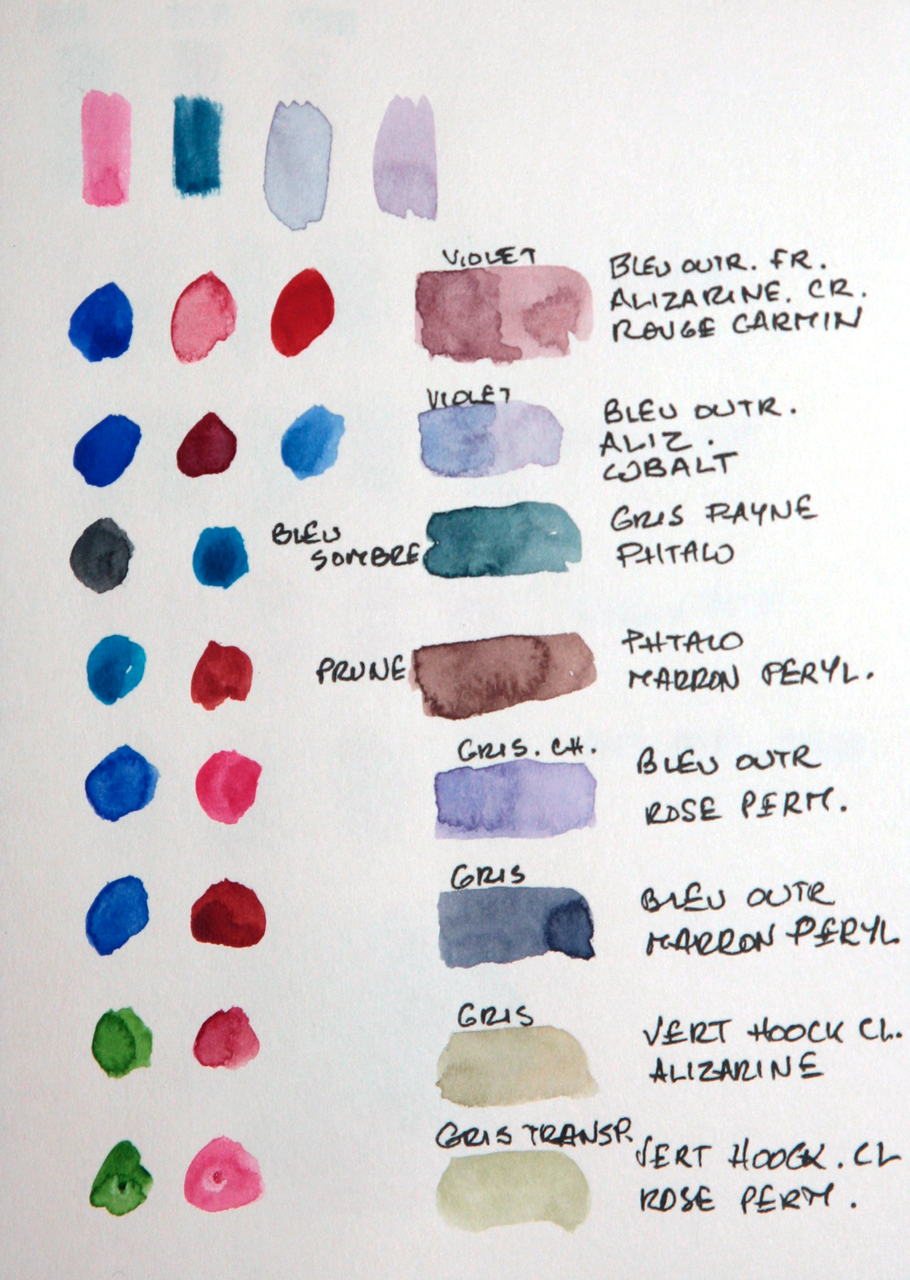 VIOLET
BLEU OUTR. FR.
ALIZARINE. CR.
ROUGE CARMIN
VIOLET
BLEU OUTR.
ALIZ.
COBALT
BLEU
SOMBRE
GRIS PAYNE
PHTALO
PRUNE
PHTALO
MARRON PERYL.
GRIS. CH.
BLEU OUTR
ROSE PERM.
GRIS
BLEU OUTR
MARRON PERYL
GRIS
VERT HOOCK CL.
ALIZARINE
GRIS TRANSP.
VERT HOOCK. CL
ROSE PERM.